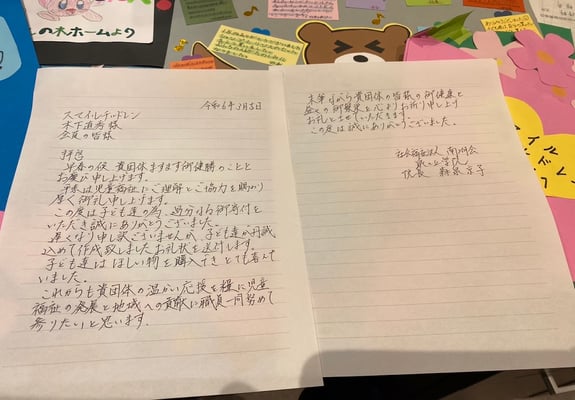 の木ホームより
令和6年3月5日
スマイルチルドレン
木下直秀様
会員の皆様
拝啓
早春の候、貴団体ますます御健勝のことと
お慶び申し上げます。
平素は児童福祉にご理解とご協力を賜わり
厚く御礼申し上げます。
この度は子ども達の為、過分なる御寄付を
いただき誠にありがとうございました。
遅くなり申し訳ございませんが、子ども達が丹誠
込めて作成致しましたお礼状を送付します。
子ども達は ほしい物を購入でき とても喜んで
いました。
これからも貴団体の温かい応援を糧に児童
福祉の発展と地域への貢献に職員一同努めて
参りたいと思います。
末筆ながら貴団体の皆様の御健康と
益々の御繁栄を心よりお祈り申し上げ
お礼とさせていただきます。
この度は誠にありがとうございました。
社会福祉法人
院長